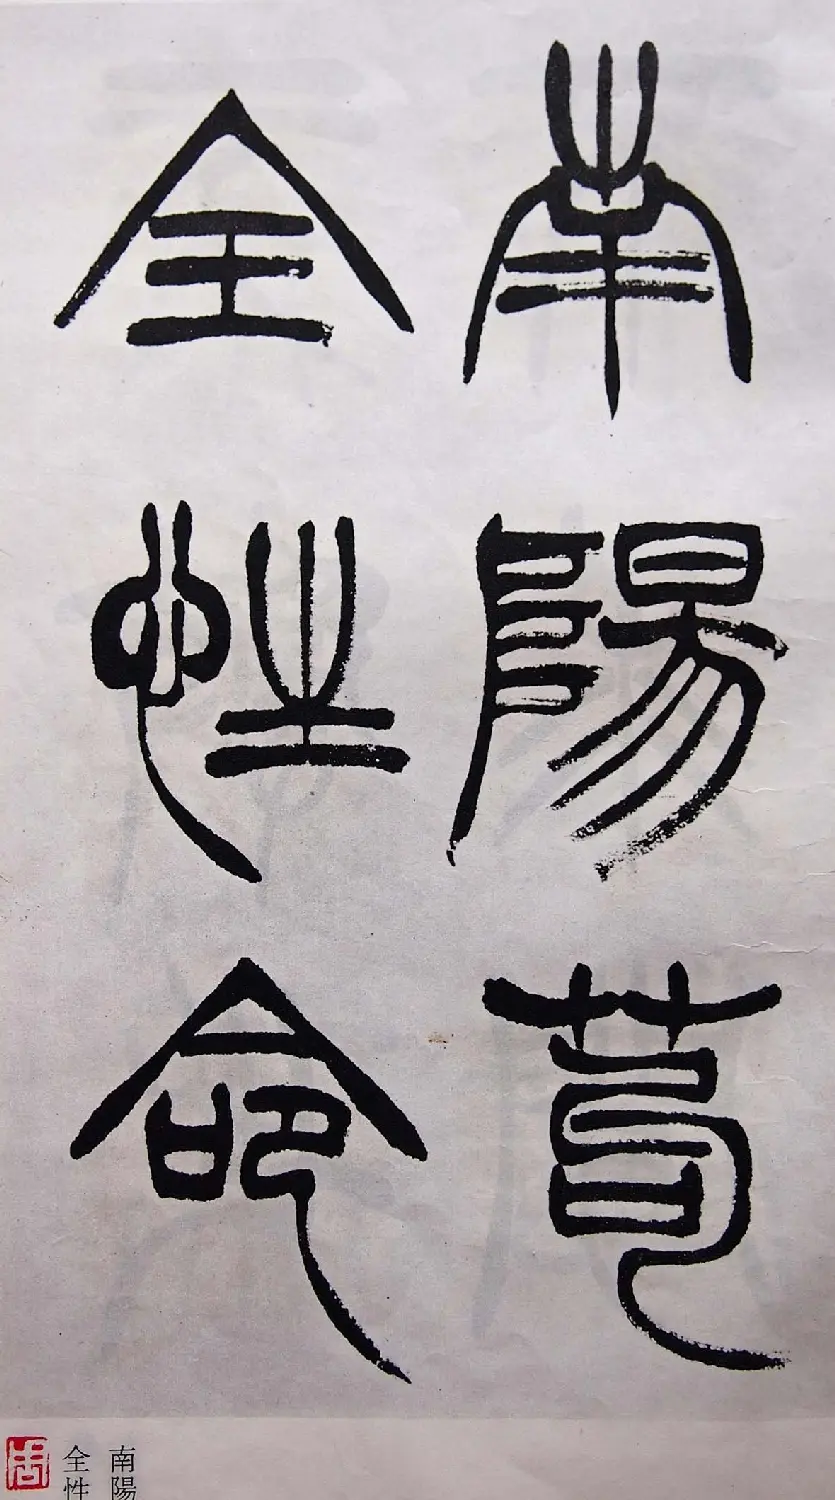 南陽苟
全性命
南陽
全性